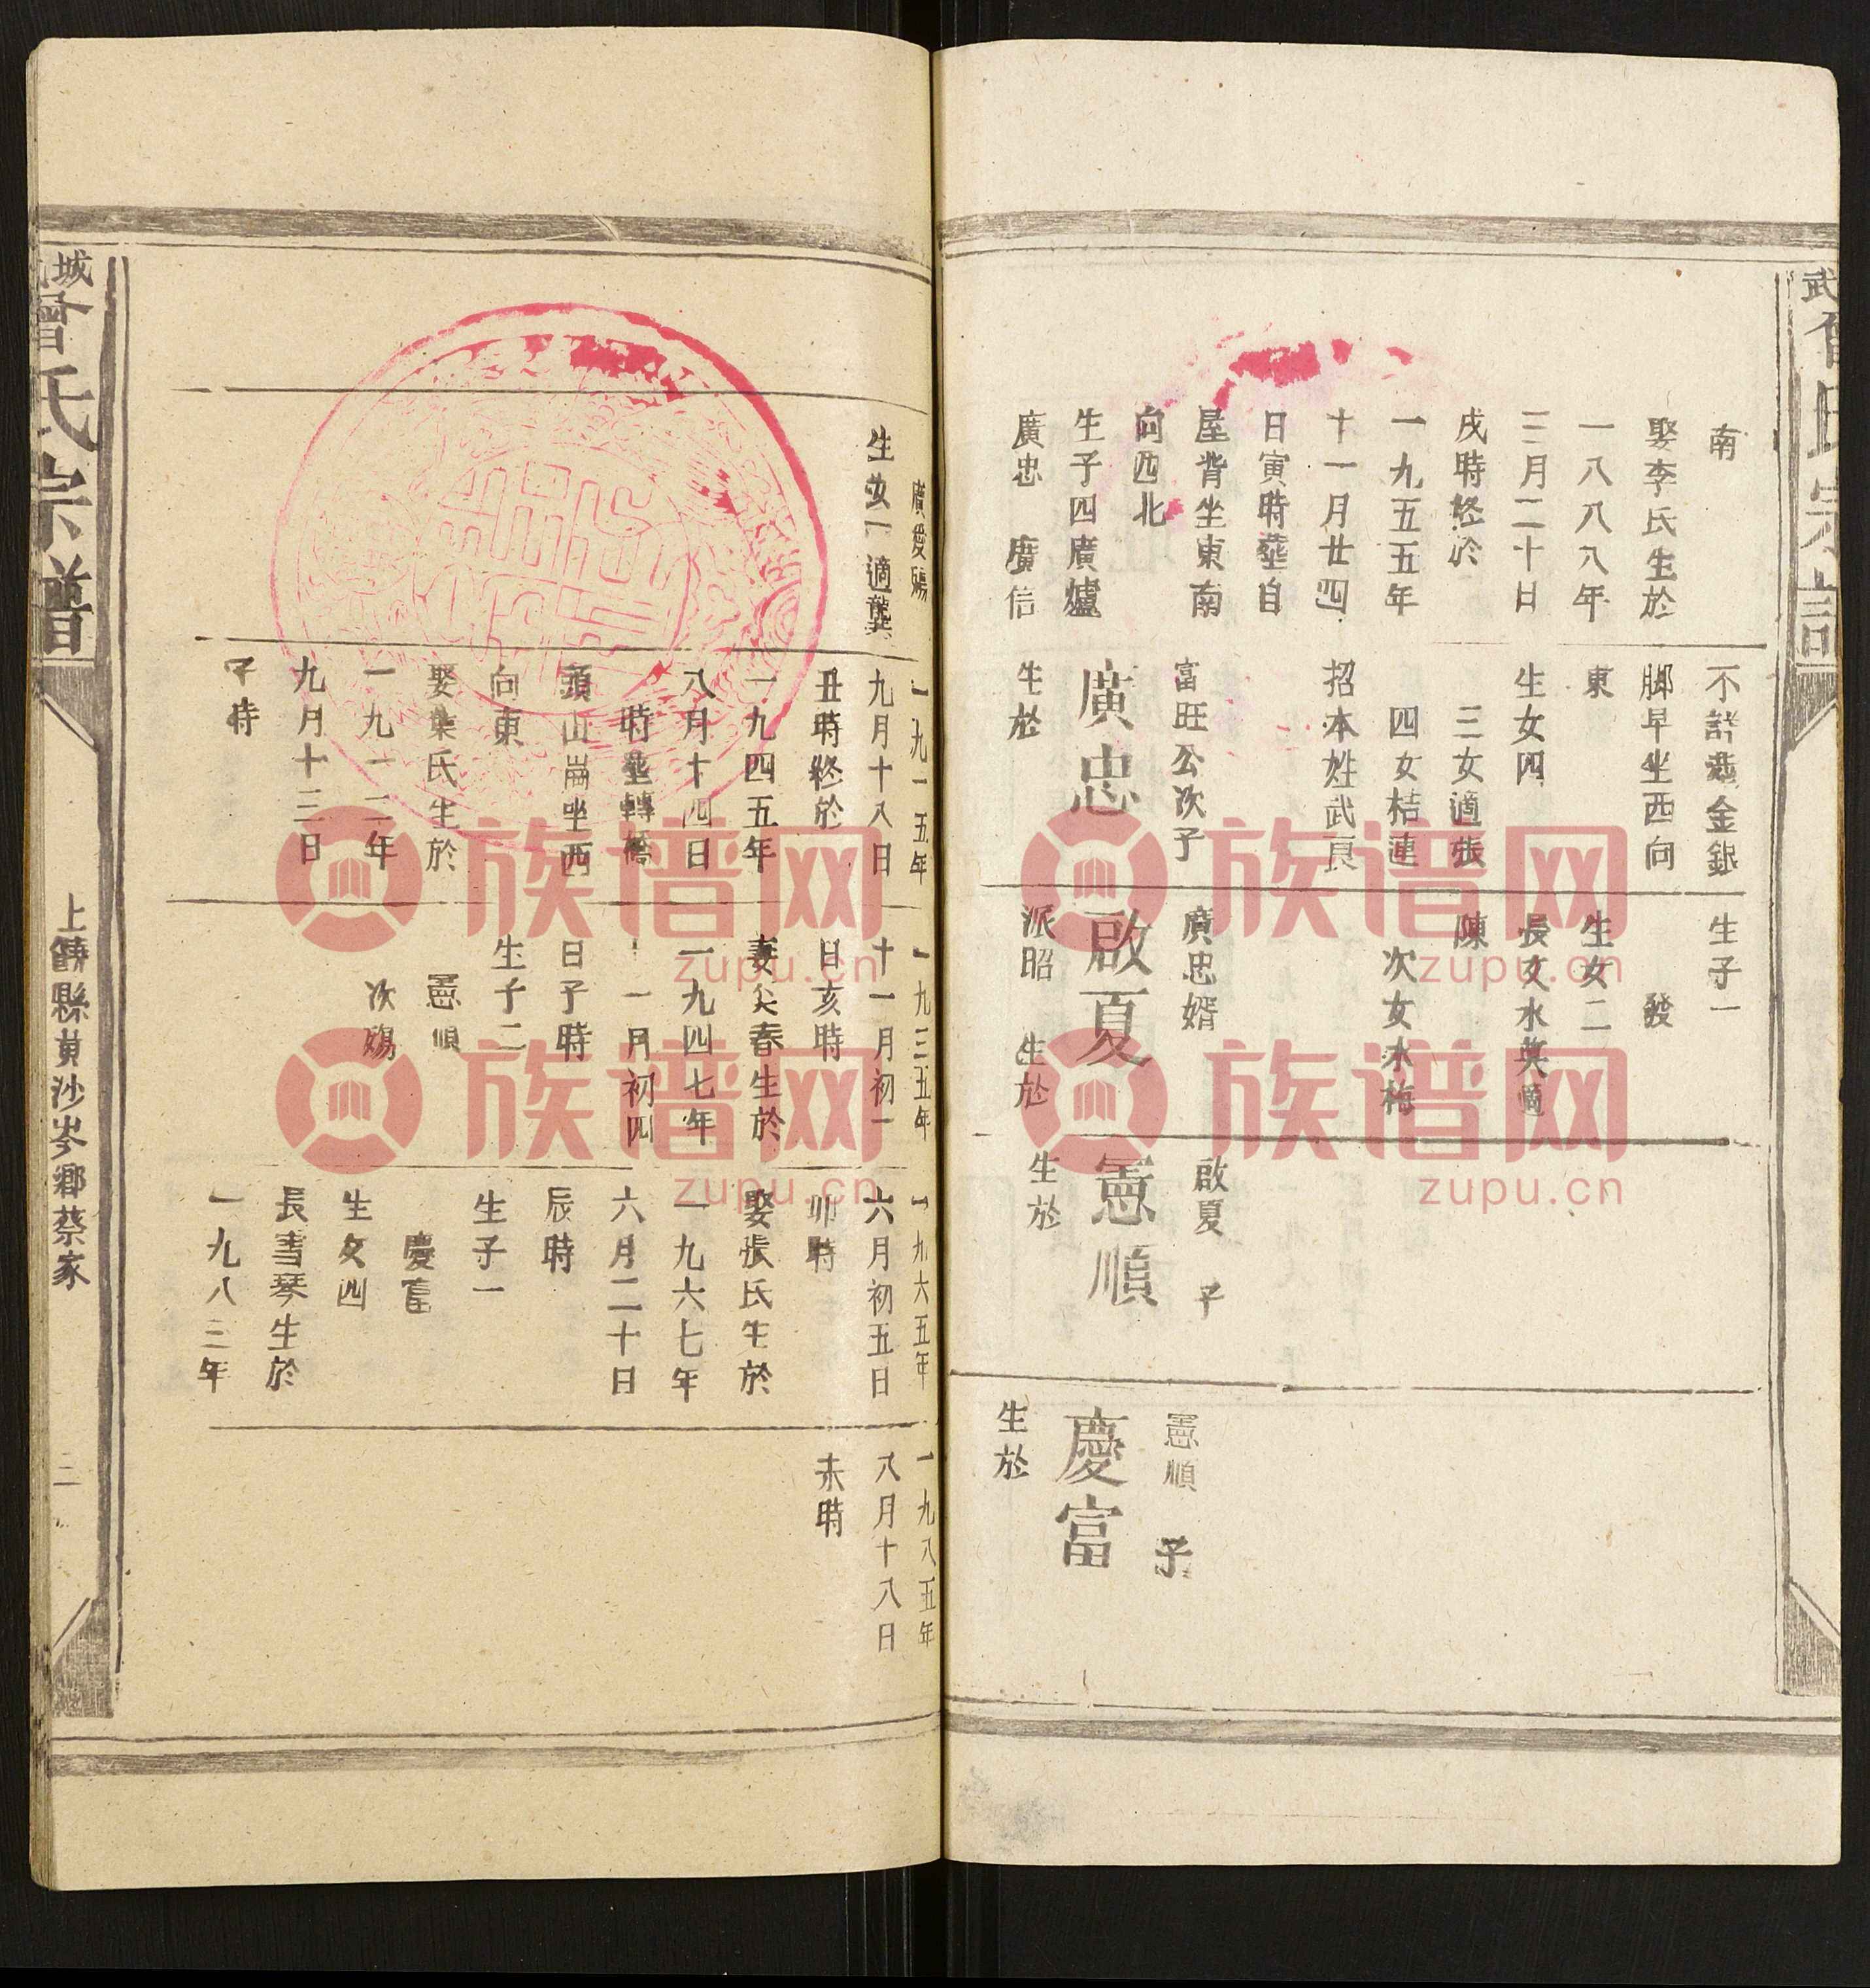 武
曾氏宗譜
南
娶李氏生於
一八八八年
三月二十日
戌時終於
一九五五年
十一月廿四
日寅時塟自
屋背坐東南
向西北
生子四廣爐
廣忠 廣信
不詳塟金銀
脚早坐西向
東
生女四
三女適張
四女桔蓮
招本姓武良
富旺公次子
廣忠
生於
生子一
發
生女二
長女水英適
陳
次女水梅
廣忠婿
啟夏
派昭 生於
啟夏 子
憲順
生於
憲順 子
慶富
生於
廣愛殤
生女一適龔
一九一五年
九月十八日
丑時終於
一九四五年
八月十四日
時塟轉橋
頭山崗坐西
向東
娶葉氏生於
一九一二年
九月十三日
子時
一九三五年
十一月初一
日亥時
妻尖春生於
一九四七年
十一月初四
日子時
生子二
憲順
次殤
一九六五年
六月初五日
卯時
娶張氏生於
一九六七年
六月二十日
辰時
生子一
慶富
生女四
長書琴生於
一九八三年
一九八五年
八月十八日
未時
城
曾氏宗譜
上饒縣黃沙岑鄉蔡家
二
族谱网
zupu.cn
族谱网
zupu.cn
族谱网
zupu.cn
族谱网
zupu.cn